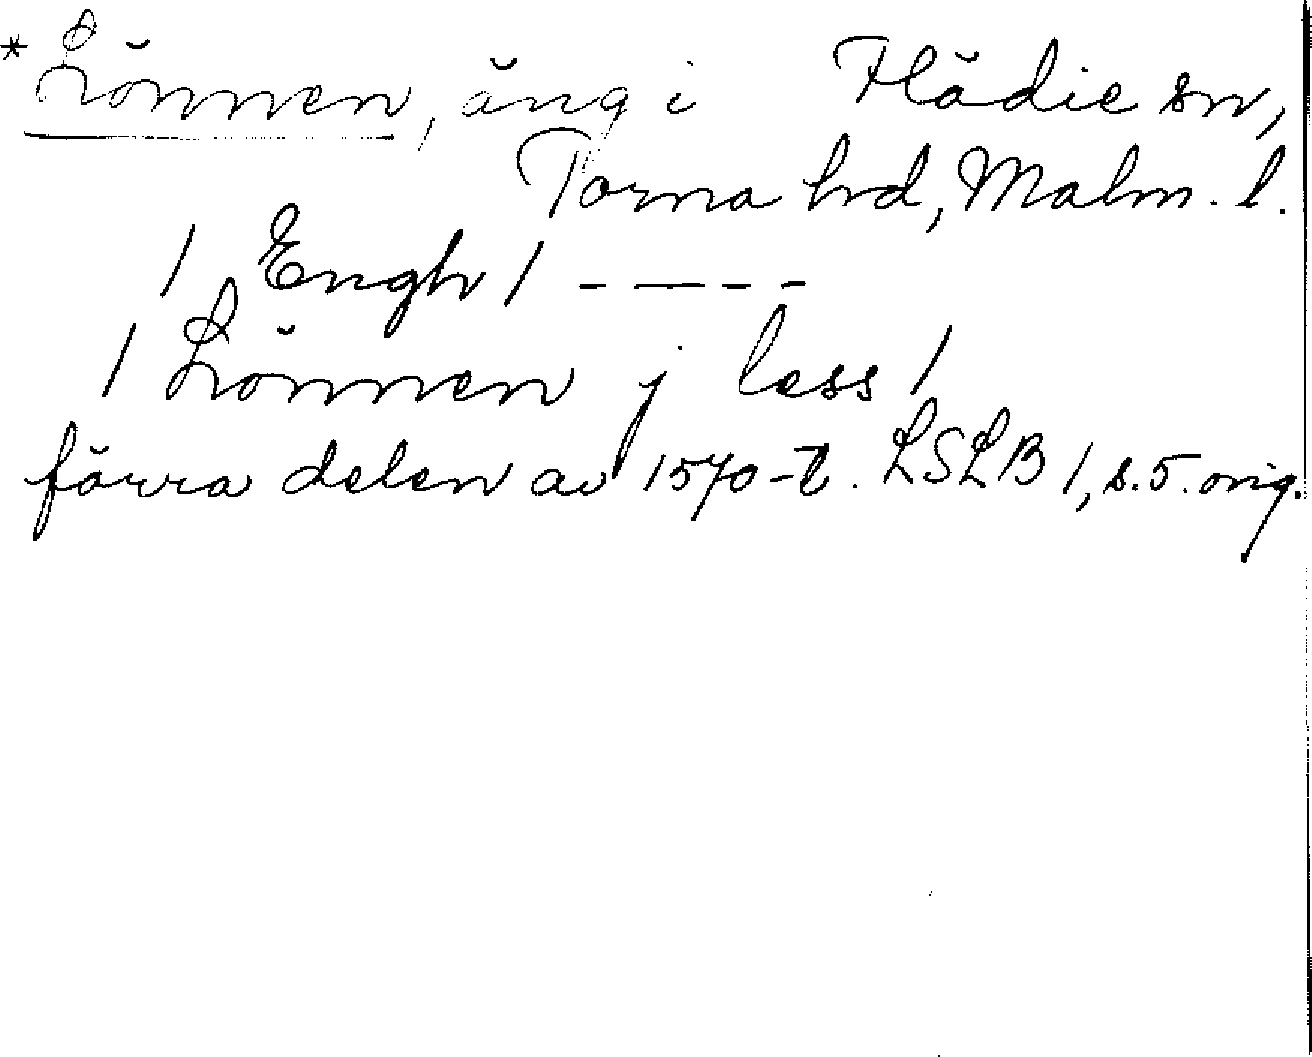 *Lönnen, äng i Flädie sn,
Torna hd, Malm. l.
/ Engh / - — - - -
/ Lönnen j less /
förra delen av 1570-t. LSLB 1, s. 5. orig.